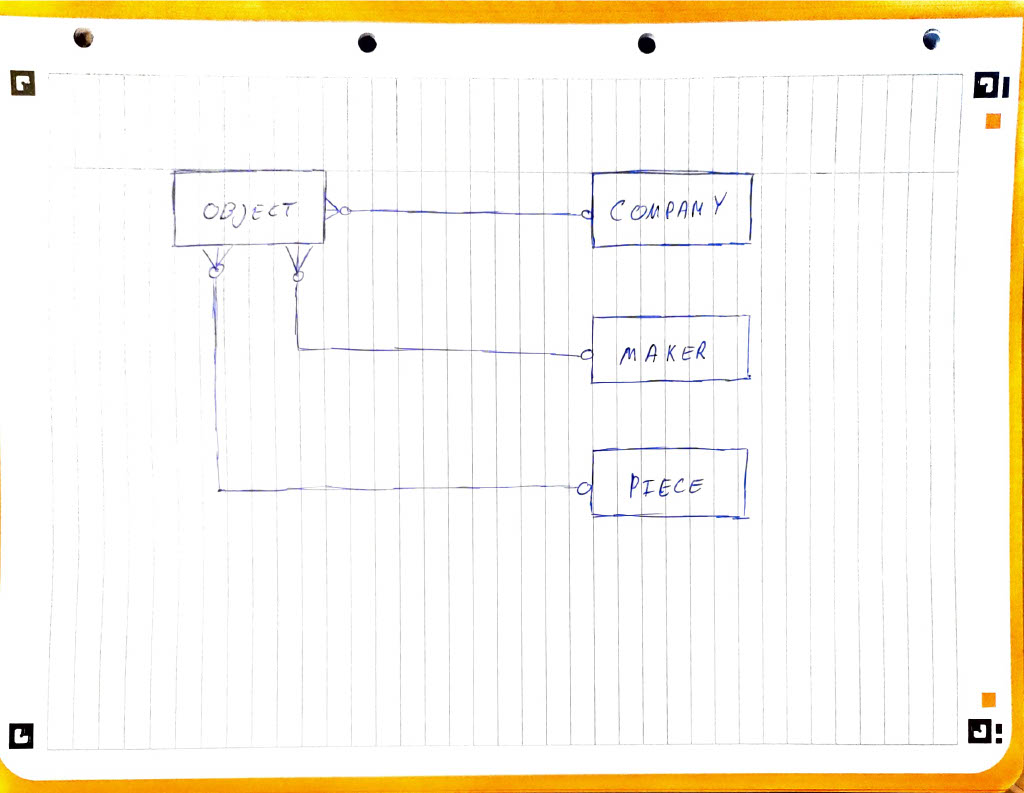 OBJECT
COMPANY
MAKER
PIECE